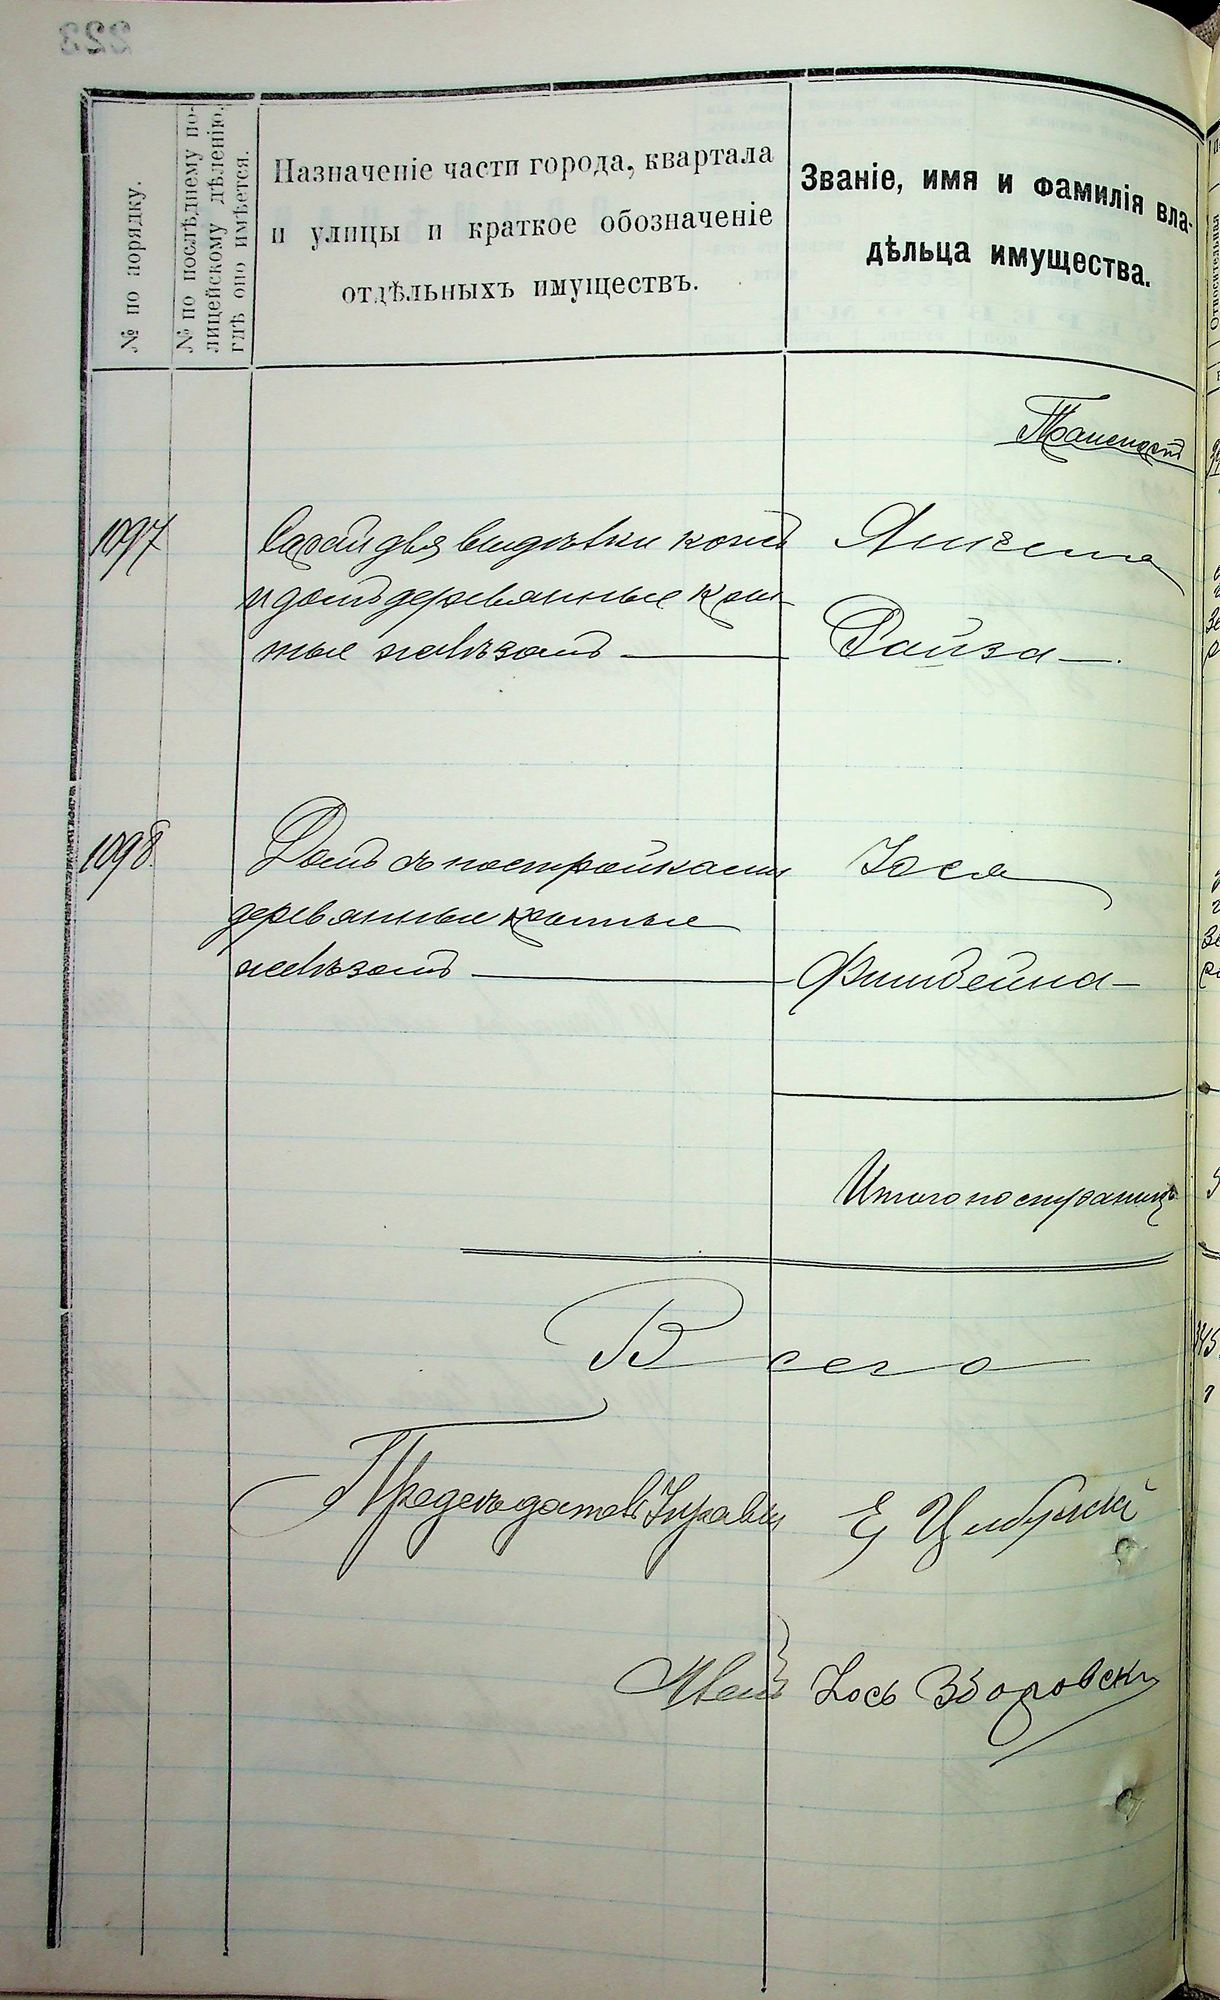 № по порядку.
№ по послѣднему по-
лицейскому дѣленію,
гдѣ оно имѣется.
Назначеніе части города, квартала
и улицы и краткое обозначеніе
отдѣльныхъ имуществъ.
Званіе, имя и фамилія вла-
дѣльца имущества.
Транспортъ
1097
Сарай для выдѣлки кожъ
и домъ деревянные кры
тые
Янкеля
Райза
1098
Домъ съ постройками
деревянные крытые
Іося
Финдейна
Итого по страниц
Всего
Предсѣдатель Управы
Члены
Іось Зборовски